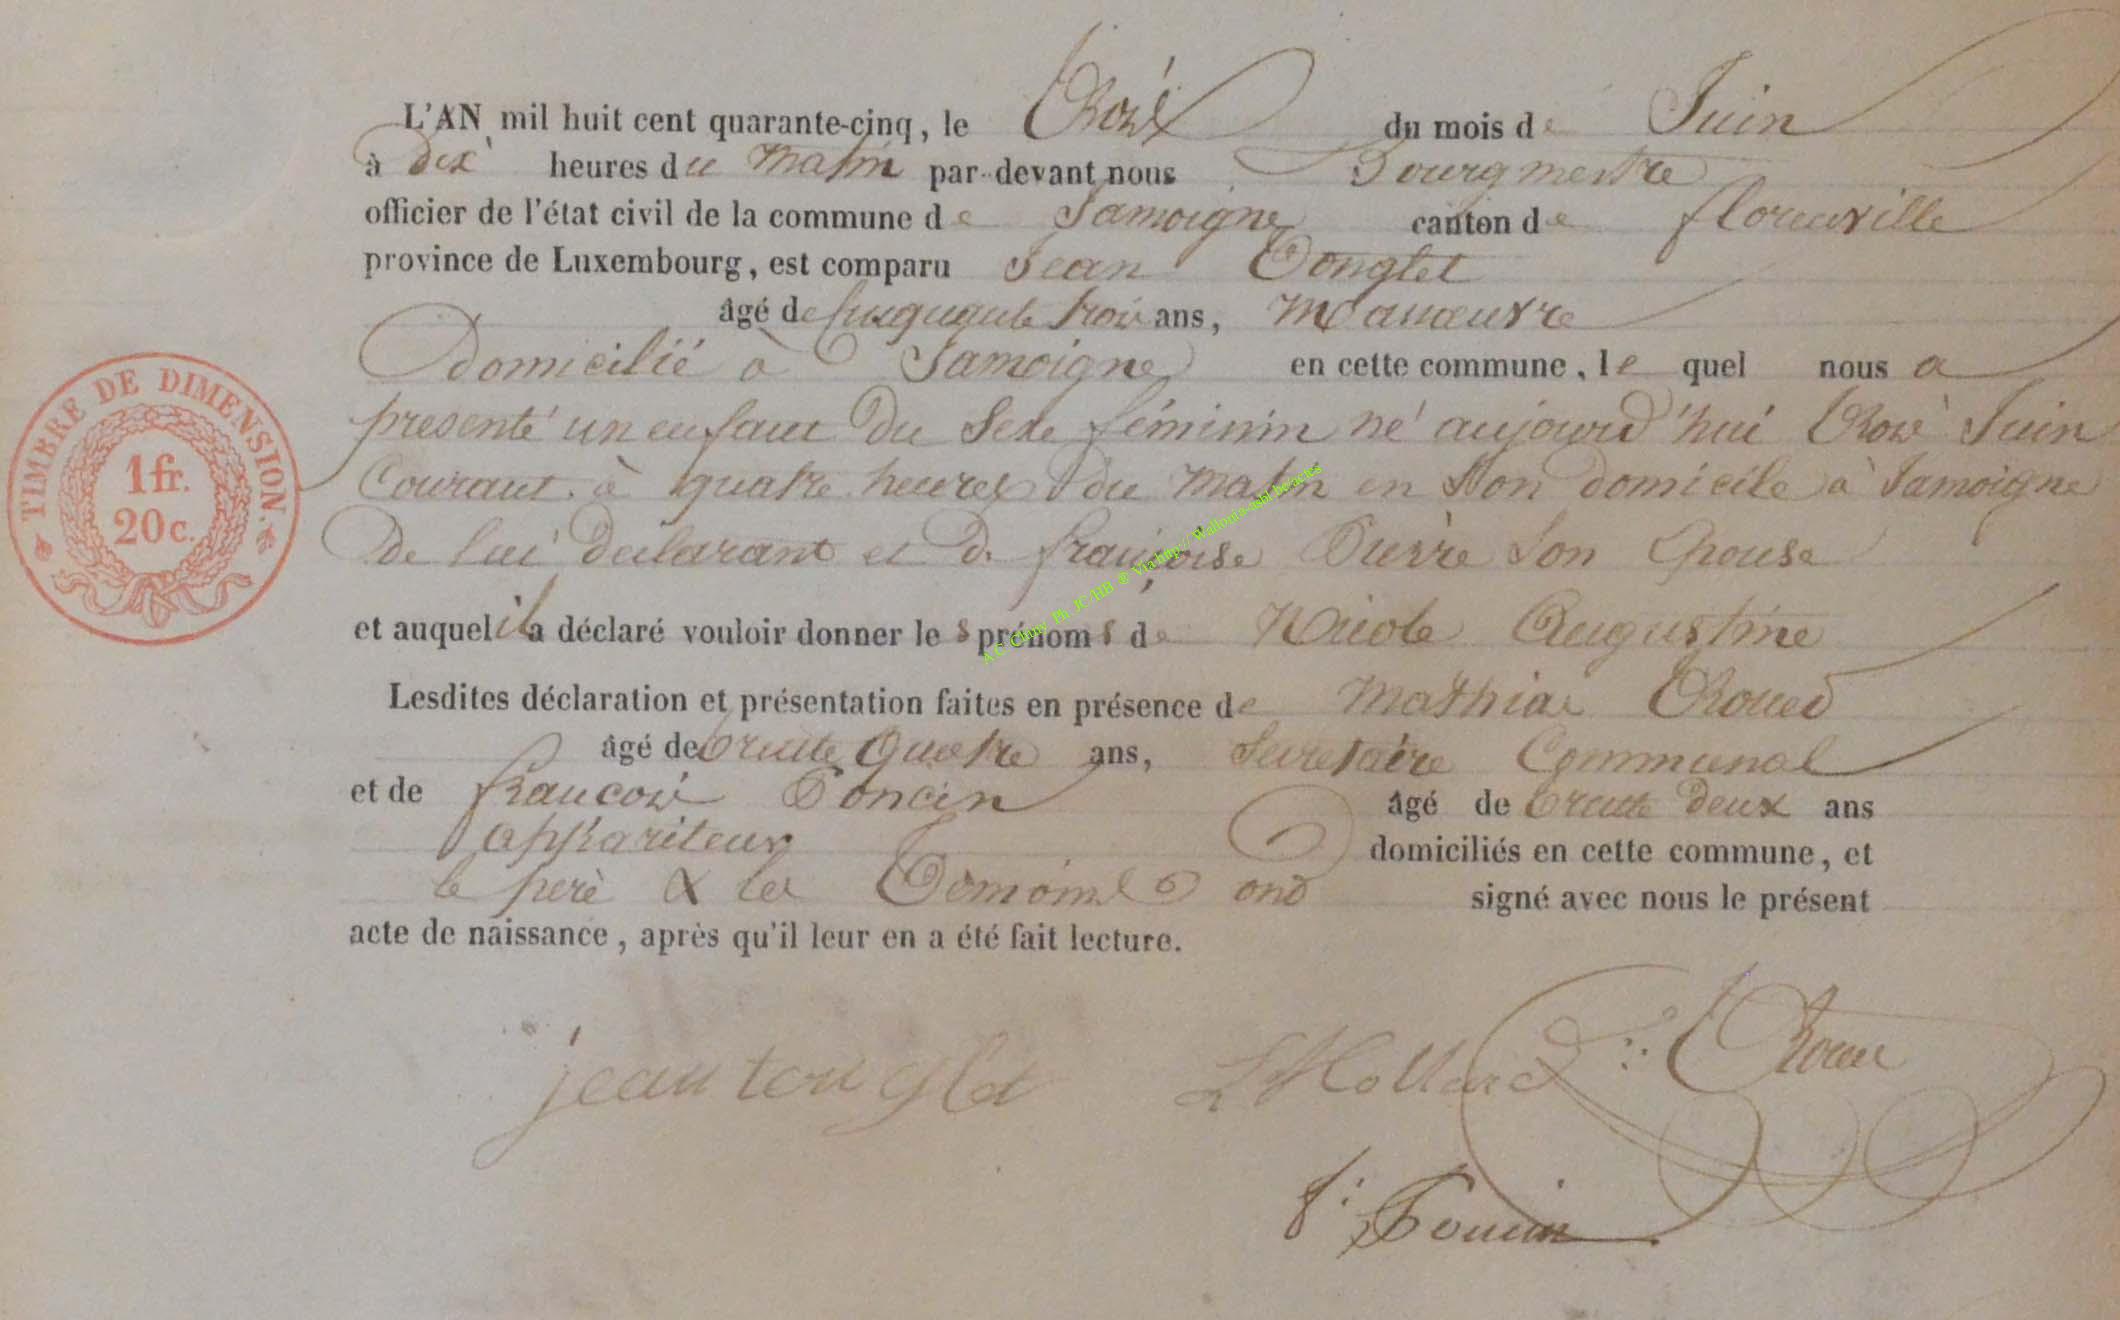 L'AN mil huit cent quarante-cinq, le Trois du mois de Juin
à dix heures du Matin par-devant nous Bourgmestre
officier de l'état civil de la commune de Jamoigne canton de florenville
province de Luxembourg, est comparu Jean Tonglet
âgé de cinquante trois ans, Manœuvre
Domicilié à Jamoigne en cette commune, le quel nous a
presenté un enfant du Sexe féminin né aujourd'hui Trois Juin
Courant à quatre heures du Matin en Son domicile à Jamoigne
De lui declarant et de françoise Son Epouse
et auquel il a déclaré vouloir donner les prénoms de Nicole Augustine
Lesdites déclaration et présentation faites en présence de Mathias
âgé de trente Quatre ans, Secretaire Communal
et de francois Poncin âgé de trente deux ans
appariteur domiciliés en cette commune, et
le père & les Temoins ont signé avec nous le présent
acte de naissance, après qu'il leur en a été fait lecture.
jean tonglet
f: Poncin
TIMBRE DE DIMENSION.
1 fr.
20 c.
A.C Chiny Ph JC-HB ® Via http://Wallonia-asbl.be/actes